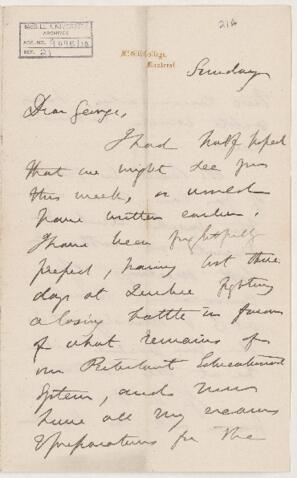 McGILL UNIVERSITY
ARCHIVES
ACC. NO.
REF. 21
McGill College,
Montreal.
Sunday
Dear George,
I had half hoped
that we might see you
this week, or would
have written earlier.
I have been frightfully
, having lost three
days at Quebec fighting
a losing battle in favour
of what remains of
our Protestant Educational
System, and now
have all my
& preparations for the